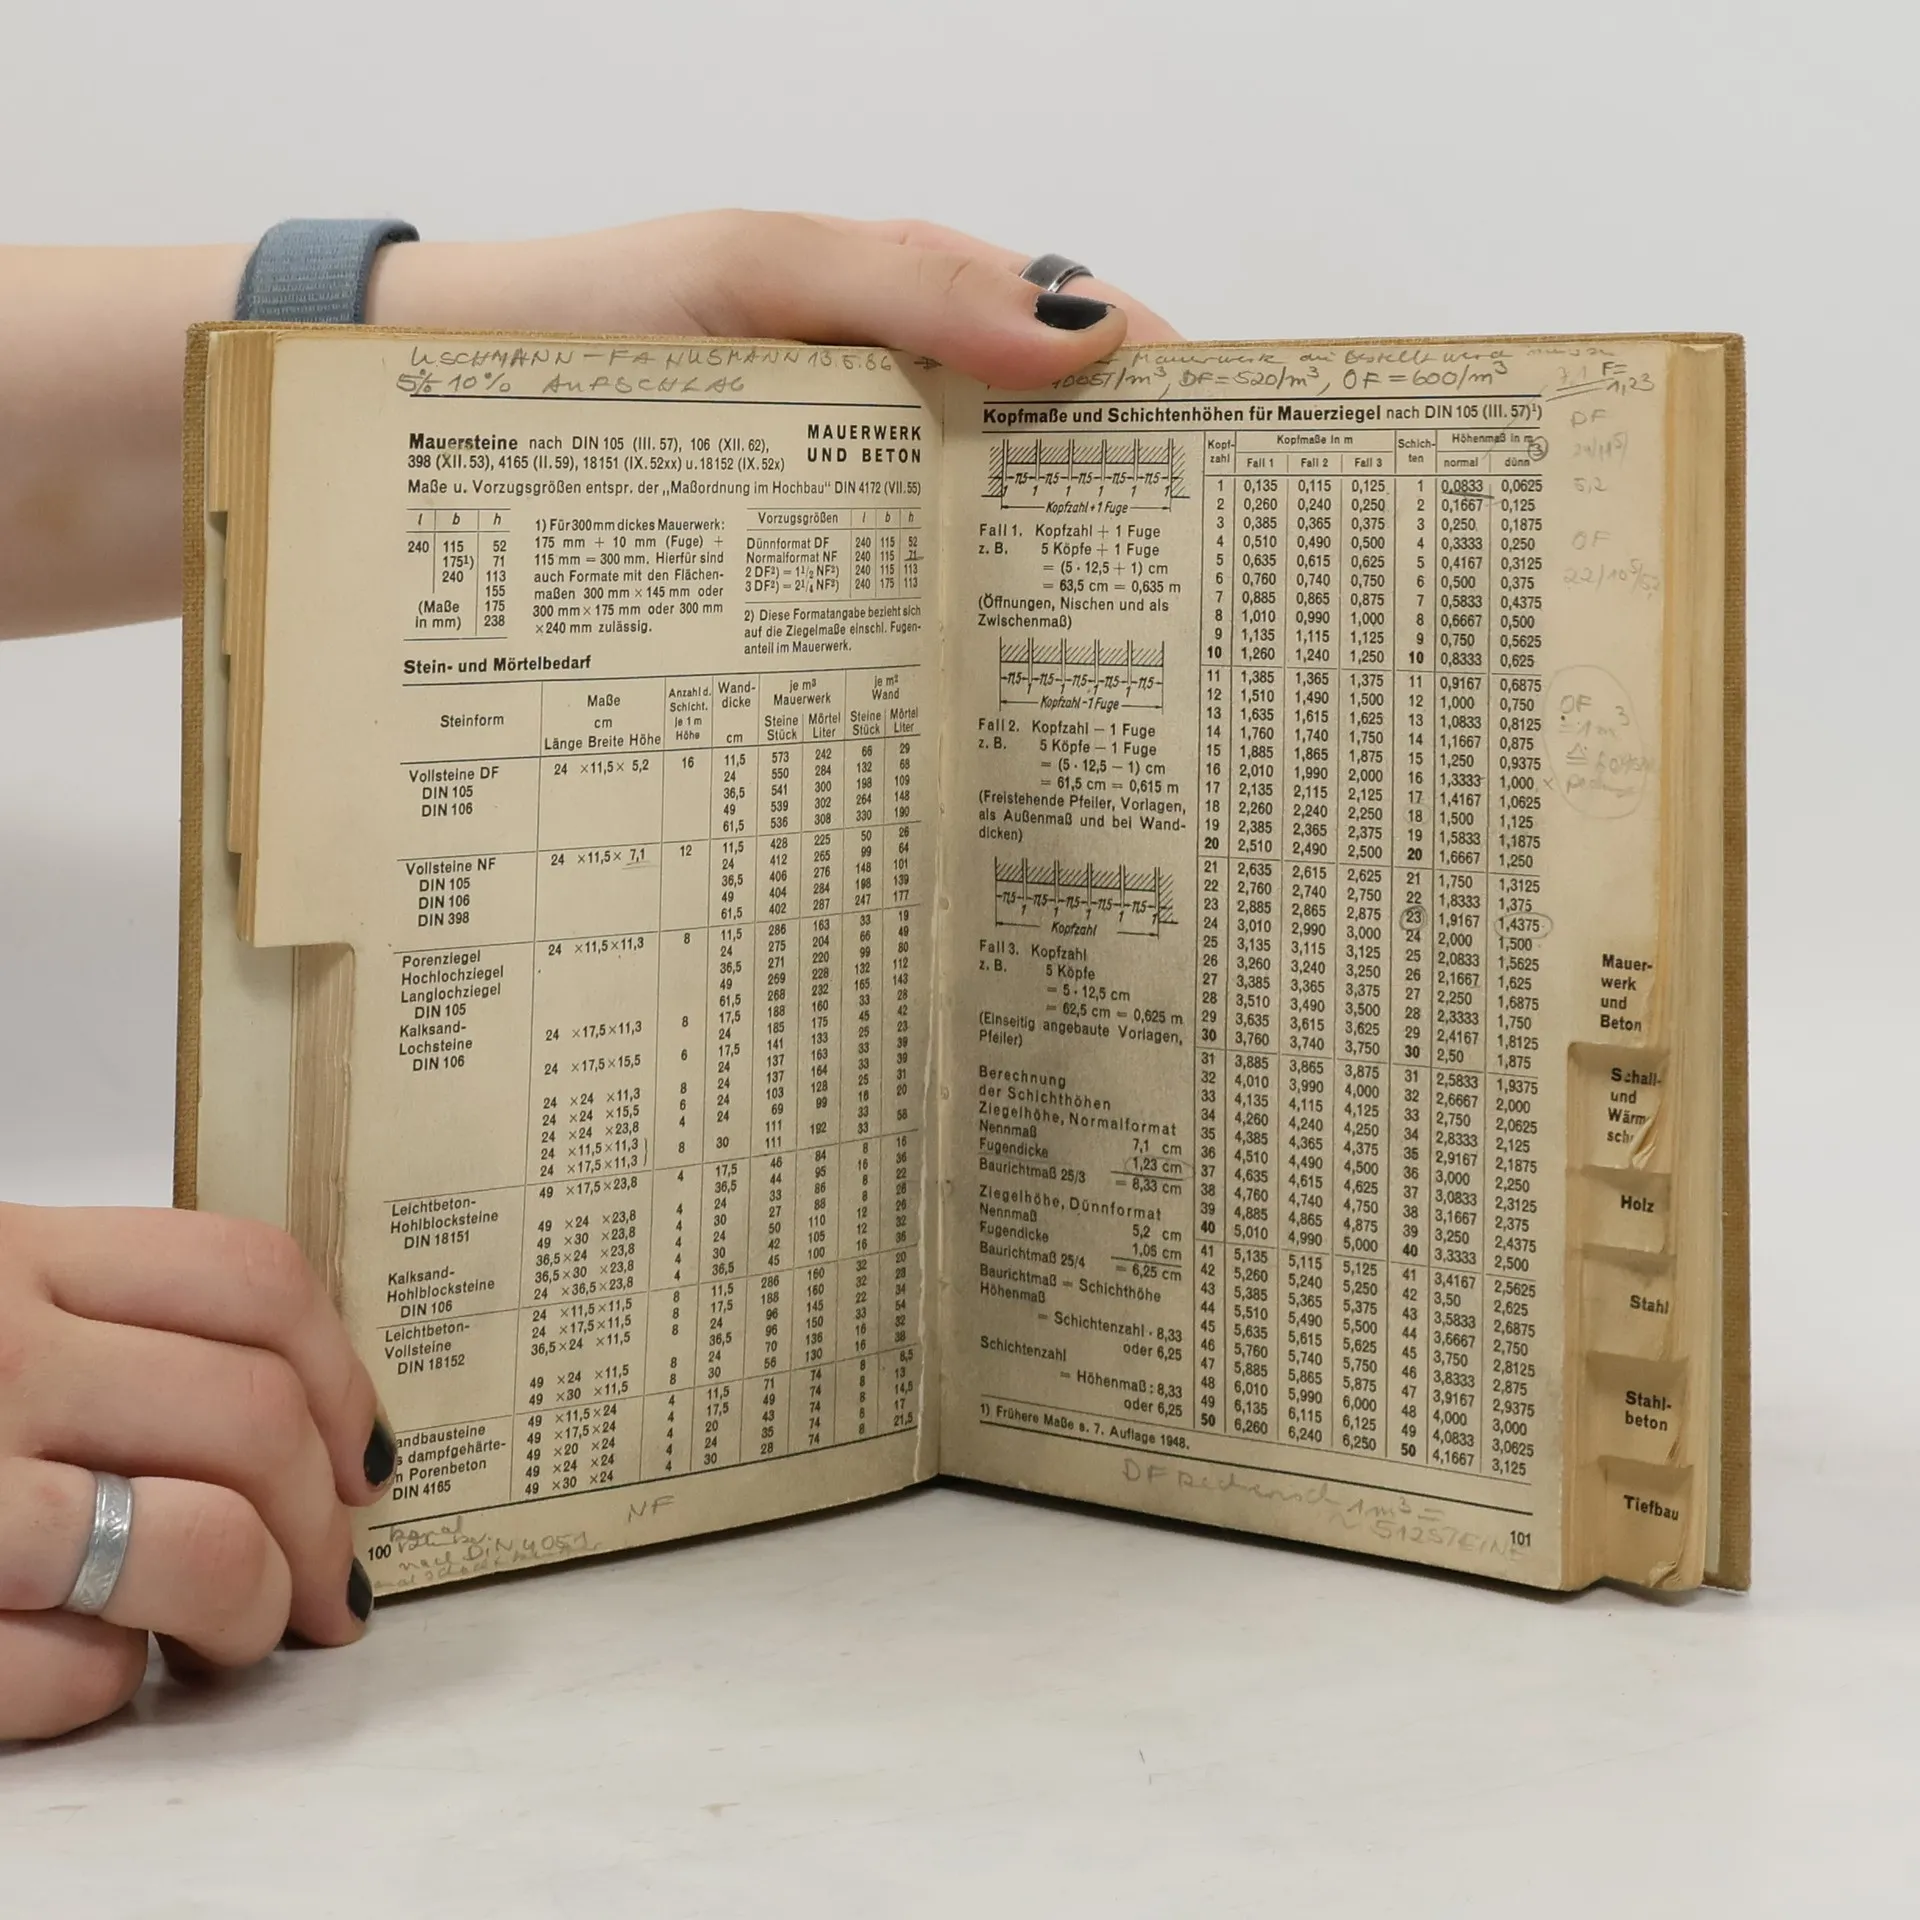 USCHMANN – FA NUSMANN 13.5.86 →
5% 10% AUFSCHLAG
Mauersteine nach DIN 105 (III. 57), 106 (XII. 62),
398 (XII. 53), 4165 (II. 59), 18151 (IX. 52xx) u. 18152 (IX. 52x)
MAUERWERK
UND BETON
Maße u. Vorzugsgrößen entspr. der „Maßordnung im Hochbau" DIN 4172 (VII. 55)
l b h
240 115 52
175¹) 71
240 113
155
(Maße 175
in mm) 238
1) Für 300 mm dickes Mauerwerk:
175 mm + 10 mm (Fuge) +
115 mm = 300 mm. Hierfür sind
auch Formate mit den Flächen-
maßen 300 mm × 145 mm oder
300 mm × 175 mm oder 300 mm
× 240 mm zulässig.
Vorzugsgrößen l b h
Dünnformat DF 240 115 52
Normalformat NF 240 115 71
2 DF²) = 1½ NF²) 240 115 113
3 DF²) = 2¼ NF²) 240 175 113
2) Diese Formatangabe bezieht sich
auf die Ziegelmaße einschl. Fugen-
anteil im Mauerwerk.
Stein- und Mörtelbedarf
Steinform
Maße
cm
Länge Breite Höhe
Anzahl d.
Schicht.
je 1 m
Höhe
Wand-
dicke
cm
je m³
Mauerwerk
Steine Mörtel
Stück Liter
je m²
Wand
Steine Mörtel
Stück Liter
Vollsteine DF 24 ×11,5× 5,2 16 11,5 573 242 66 29
DIN 105 24 550 284 132 68
DIN 106 36,5 541 300 198 109
49 539 302 264 148
61,5 536 308 330 190
Vollsteine NF 24 ×11,5× 7,1 12 11,5 428 225 50 26
DIN 105 24 412 265 99 64
DIN 106 36,5 406 276 148 101
DIN 398 49 404 284 198 139
61,5 402 287 247 177
Porenziegel 24 ×11,5×11,3 8 11,5 286 163 33 19
Hochlochziegel 24 275 204 66 49
Langlochziegel 36,5 271 220 99 80
DIN 105 49 269 228 132 112
Kalksand- 61,5 268 232 165 143
Lochsteine 24 ×17,5×11,3 8 17,5 188 160 33 28
DIN 106 24 185 175 45 42
24 ×17,5×15,5 6 17,5 141 133 25 23
24 137 163 33 39
24 ×24 ×11,3 8 24 137 164 33 39
24 ×24 ×15,5 6 24 103 128 25 31
24 ×24 ×23,8 4 24 69 99 16 20
24 ×11,5×11,3 8 30 111 192 33 58
24 ×17,5×11,3 111 33
Leichtbeton- 49 ×17,5×23,8 4 17,5 46 84 8 16
Hohlblocksteine 36,5 44 95 16 36
DIN 18151 49 ×24 ×23,8 4 24 33 86 8 22
49 ×30 ×23,8 4 30 27 88 8 26
Kalksand- 36,5×24 ×23,8 4 24 50 110 12 26
Hohlblocksteine 36,5×30 ×23,8 4 30 42 105 12 32
DIN 106 24 ×36,5×23,8 4 36,5 45 100 16 36
Leichtbeton- 24 ×11,5×11,5 8 11,5 286 160 32 20
Vollsteine 24 ×17,5×11,5 8 17,5 188 160 32 28
DIN 18152 36,5×24 ×11,5 8 24 96 145 22 34
36,5 96 150 33 54
49 ×24 ×11,5 8 24 70 136 16 32
49 ×30 ×11,5 8 30 56 130 16 38
andbausteine 49 ×11,5×24 4 11,5 71 74 8 8,5
dampfgehärte- 49 ×17,5×24 4 17,5 49 74 8 13
Porenbeton 49 ×20 ×24 4 20 43 74 8 14,5
DIN 4165 49 ×24 ×24 4 24 35 74 8 17
49 ×30 ×24 4 30 28 74 8 21,5
NF
100
nach DIN 4051
Mauerwerk
ST/m³, DF = 520/m³, OF = 600/m³
7,1 F=
1,23
Kopfmaße und Schichtenhöhen für Mauerziegel nach DIN 105 (III. 57)¹)
11,5 11,5 11,5 11,5 11,5
1 1 1 1 1 1
Kopfzahl + 1 Fuge
Fall 1. Kopfzahl + 1 Fuge
z. B. 5 Köpfe + 1 Fuge
= (5 · 12,5 + 1) cm
= 63,5 cm = 0,635 m
(Öffnungen, Nischen und als
Zwischenmaß)
11,5 11,5 11,5 11,5 11,5
1 1 1 1
Kopfzahl - 1 Fuge
Fall 2. Kopfzahl − 1 Fuge
z. B. 5 Köpfe − 1 Fuge
= (5 · 12,5 − 1) cm
= 61,5 cm = 0,615 m
(Freistehende Pfeiler, Vorlagen,
als Außenmaß und bei Wand-
dicken)
11,5 11,5 11,5 11,5 11,5
1 1 1 1 1
Kopfzahl
Fall 3. Kopfzahl
z. B. 5 Köpfe
= 5 · 12,5 cm
= 62,5 cm = 0,625 m
(Einseitig angebaute Vorlagen,
Pfeiler)
Berechnung
der Schichthöhen
Ziegelhöhe, Normalformat
Nennmaß 7,1 cm
Fugendicke 1,23 cm
Baurichtmaß 25/3 = 8,33 cm
Ziegelhöhe, Dünnformat
Nennmaß 5,2 cm
Fugendicke 1,05 cm
Baurichtmaß 25/4 = 6,25 cm
Baurichtmaß = Schichthöhe
Höhenmaß
= Schichtenzahl · 8,33
oder 6,25
Schichtenzahl
= Höhenmaß : 8,33
oder 6,25
1) Frühere Maße s. 7. Auflage 1948.
Kopf-
zahl
Kopfmaße in m
Fall 1 Fall 2 Fall 3
Schich-
ten
Höhenmaß in m
normal dünn
3
1 0,135 0,115 0,125 1 0,0833 0,0625
2 0,260 0,240 0,250 2 0,1667 0,125
3 0,385 0,365 0,375 3 0,250 0,1875
4 0,510 0,490 0,500 4 0,3333 0,250
5 0,635 0,615 0,625 5 0,4167 0,3125
6 0,760 0,740 0,750 6 0,500 0,375
7 0,885 0,865 0,875 7 0,5833 0,4375
8 1,010 0,990 1,000 8 0,6667 0,500
9 1,135 1,115 1,125 9 0,750 0,5625
10 1,260 1,240 1,250 10 0,8333 0,625
11 1,385 1,365 1,375 11 0,9167 0,6875
12 1,510 1,490 1,500 12 1,000 0,750
13 1,635 1,615 1,625 13 1,0833 0,8125
14 1,760 1,740 1,750 14 1,1667 0,875
15 1,885 1,865 1,875 15 1,250 0,9375
16 2,010 1,990 2,000 16 1,3333 1,000
17 2,135 2,115 2,125 17 1,4167 1,0625
18 2,260 2,240 2,250 18 1,500 1,125
19 2,385 2,365 2,375 19 1,5833 1,1875
20 2,510 2,490 2,500 20 1,6667 1,250
21 2,635 2,615 2,625 21 1,750 1,3125
22 2,760 2,740 2,750 22 1,8333 1,375
23 2,885 2,865 2,875 23 1,9167 1,4375
24 3,010 2,990 3,000 24 2,000 1,500
25 3,135 3,115 3,125 25 2,0833 1,5625
26 3,260 3,240 3,250 26 2,1667 1,625
27 3,385 3,365 3,375 27 2,250 1,6875
28 3,510 3,490 3,500 28 2,3333 1,750
29 3,635 3,615 3,625 29 2,4167 1,8125
30 3,760 3,740 3,750 30 2,50 1,875
31 3,885 3,865 3,875 31 2,5833 1,9375
32 4,010 3,990 4,000 32 2,6667 2,000
33 4,135 4,115 4,125 33 2,750 2,0625
34 4,260 4,240 4,250 34 2,8333 2,125
35 4,385 4,365 4,375 35 2,9167 2,1875
36 4,510 4,490 4,500 36 3,000 2,250
37 4,635 4,615 4,625 37 3,0833 2,3125
38 4,760 4,740 4,750 38 3,1667 2,375
39 4,885 4,865 4,875 39 3,250 2,4375
40 5,010 4,990 5,000 40 3,3333 2,500
41 5,135 5,115 5,125 41 3,4167 2,5625
42 5,260 5,240 5,250 42 3,50 2,625
43 5,385 5,365 5,375 43 3,5833 2,6875
44 5,510 5,490 5,500 44 3,6667 2,750
45 5,635 5,615 5,625 45 3,750 2,8125
46 5,760 5,740 5,750 46 3,8333 2,875
47 5,885 5,865 5,875 47 3,9167 2,9375
48 6,010 5,990 6,000 48 4,000 3,000
49 6,135 6,115 6,125 49 4,0833 3,0625
50 6,260 6,240 6,250 50 4,1667 3,125
DF
5,2
OF
OF
1 m³
DF 1 m³ =
~ 512 STEINE
101
Mauer-
werk
und
Beton
Schall-
und
Wärm
sch
Holz
Stahl
Stahl-
beton
Tiefbau